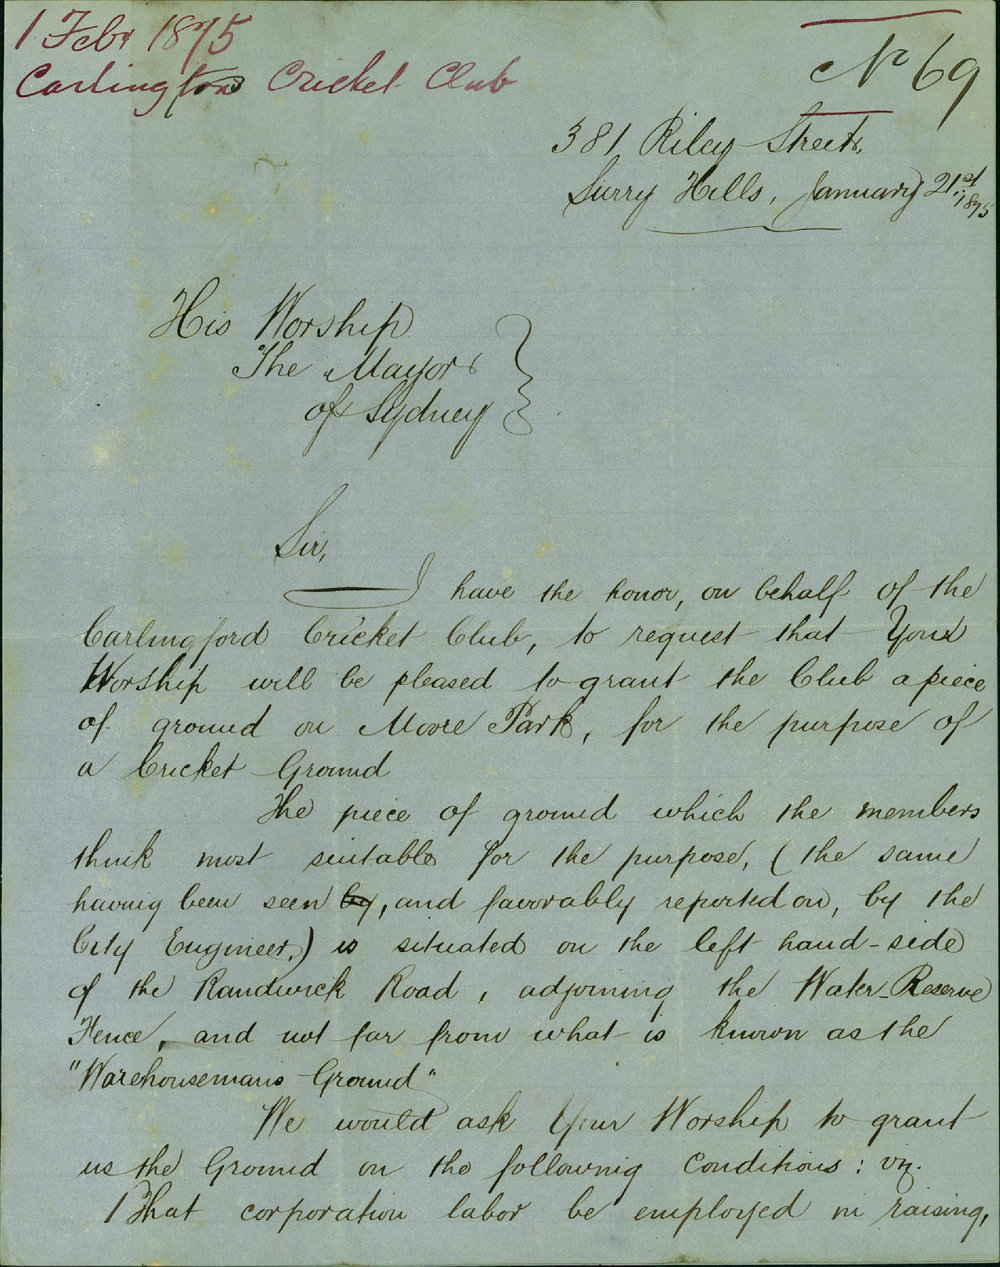 1 Febr 1875
Carlington Cricket Club
No 69
381 Riley Street,
Surry Hills, January 21st, 1875
His Worship
The Mayor
of Sydney
Sir,
I have the honor, on behalf of the
Carlingford Cricket Club, to request that Your
Worship will be pleased to grant the Club a piece
of ground on Moore Park, for the purpose of
a Cricket Ground
The piece of ground which the members
think most suitable for the purpose, (the same
having been seen by, and favorably reported on, by the
City Engineer,) is situated on the left hand-side
of the Randwick Road, adjoining the Water-Reserve
Fence, and not far from what is known as the
"Warehousemans Ground"
We would ask Your Worship to grant
us the Ground on the following Conditions: viz.
1 That corporation labor be employed in raising,